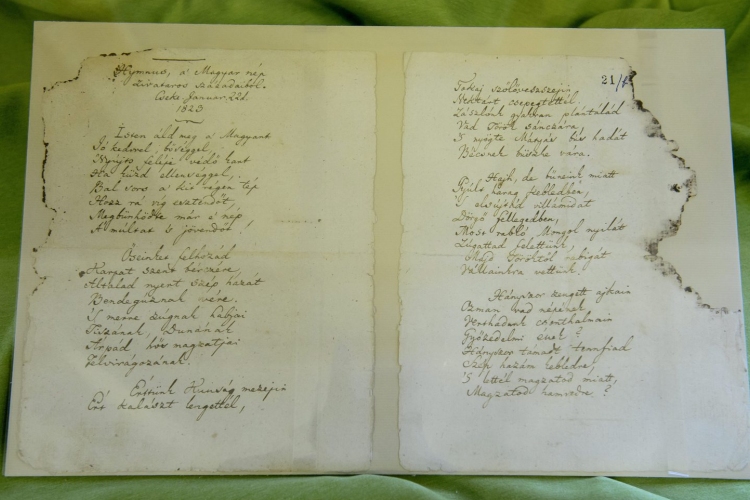 Hymnus, a' Magyar nép
zivataros századaiból.
Cseke Januar. 22d.
1823
Isten áldd meg a' Magyart
Jó kedvvel, bőséggel,
Nyújts feléje védő kart
Ha küzd ellenséggel;
Bal sors a' kit régen tép
Hozz rá víg esztendőt,
Megbűnhödte már e' nép
A' múltat 's jövendőt!
Őseinket felhozád
Kárpát szent bérczére,
Általad nyert szép hazát
Bendegúznak vére.
'S merre zúgnak habjai
Tiszának, Dunának
Árpád hős magzatjai
Felvirágozának.
Értünk Kunság mezején
Ért kalászt lengettél,
21/
Tokaj szőlővesszején
Nektárt csepegtettél.
Zászlónk gyakran plántálád
Vad Török sánczára,
'S nyögte Mátyás bús hadát
Bécsnek büszke vára.
Hajh, de bűneink miatt
Gyúlt harag kebledben,
'S elsújtád villámidat
Dörgő fellegedben,
Most rabló Mongol nyilát
Zúgattad felettünk,
Majd Töröktől rabigát
Vállainkra vettünk.
Hányszor zengett ajkain
Ozman vad népének
Vert hadunk csonthalmain
Győzedelmi ének?
Hányszor támadt tennfiad
Szép hazám kebledre,
'S lettél magzatod miatt,
Magzatod hamvvedre?